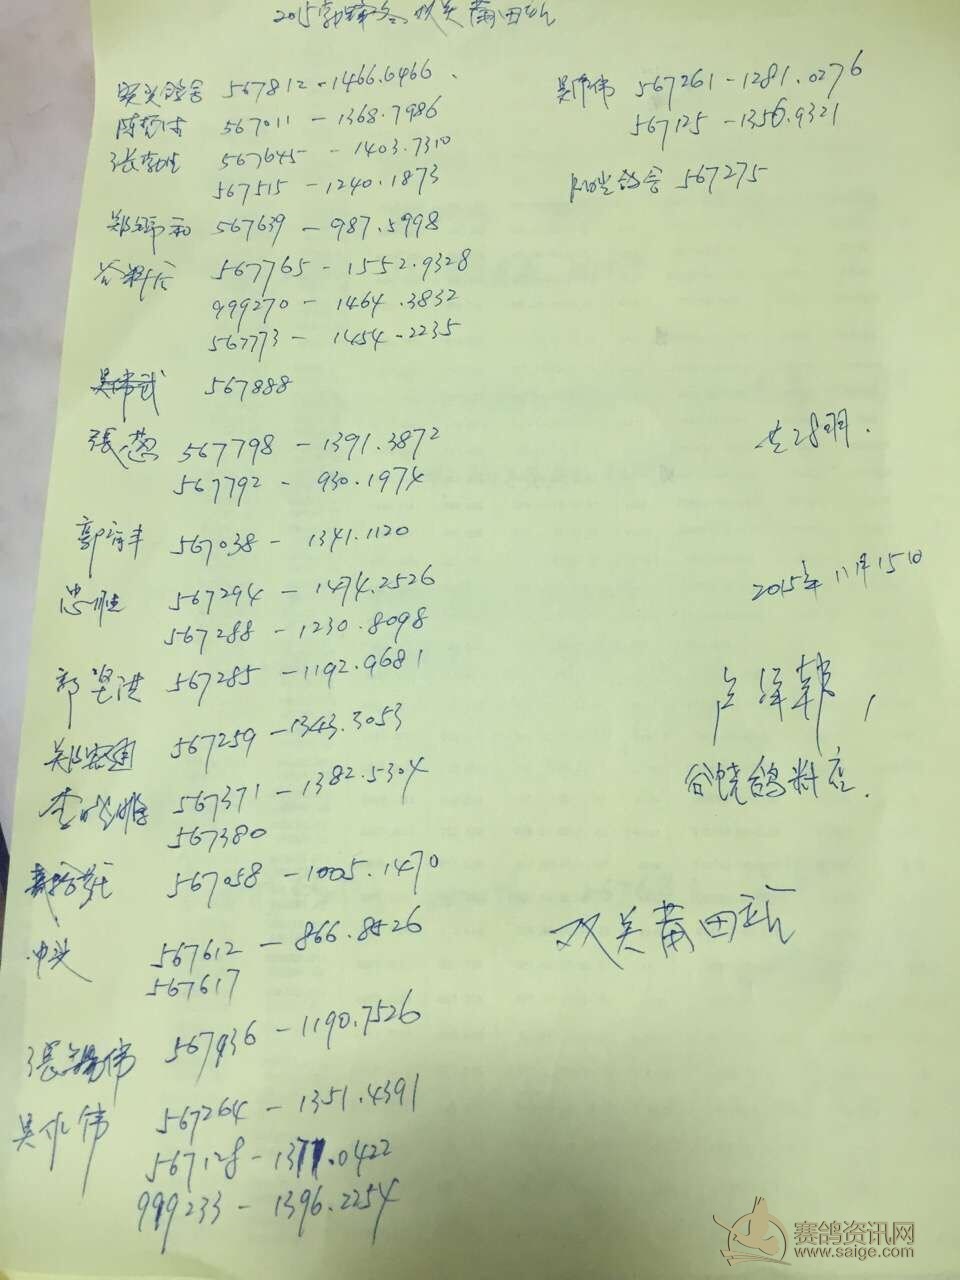 2015 双关莆田站
567812-1466.6466.
567011-1368.7986
567645-1403.7310
567515-1240.1873
567639-987.5998
谷料店 567765-1552.9328
999270-1464.3832
567773-1454.2235
吴伟武 567888
567798-1391.3872
567792-930.1974
567038-1341.1120
忠胜 567294-1474.2526
567288-1230.8098
郭坚洪 567285-1192.9681
567259-1343.3053
567371-1382.5304
567380
567058-1005.1470
567612-866.8526
567617
张锡伟 567936-1190.7526
伟 567264-1351.4391
567128-1371.0422
999233-1396.2254
伟 567261-1281.0276
567125-1356.9321
阳光鸽舍 567275
共28羽.
2015年11月15日
谷饶鸽料店.
双关莆田站
赛鸽资讯网
www.saige.com